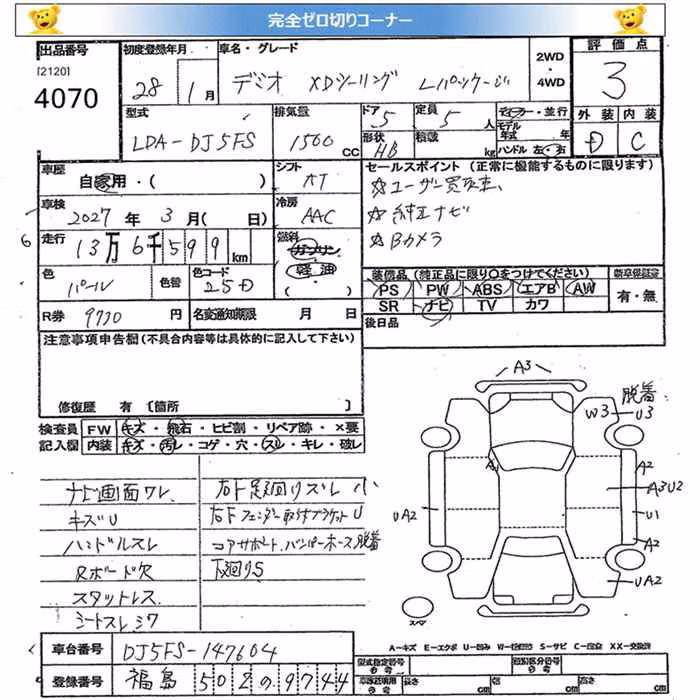 完全ゼロ切りコーナー
出品番号
[2120]
4070
初度登録年月
28 1月
車名・グレード
デミオ XDツーリング Lパッケージ
2WD
・
4WD
評価点
3
外装 内装
D C
型式
LDA-DJ5FS
排気量
1500 CC
ドア
5
形状
HB
定員
5 人
積載
kg
ディーラー・並行
モデル
年式 年
ハンドル 左・右
車歴
自家用・( )
シフト
AT
セールスポイント(正常に機能するものに限ります)
☆ユーザー買取車、
☆純正ナビ
☆Bカメラ
車検
2027年 3月( 日)
冷房
AAC
6
走行
13万6千599km
燃料
ガソリン
軽油
( )
色
パール
色替
色コード
25D
装備品(純正品に限り○をつけてください)
PS PW ABS エアB AW
SR ナビ TV カワ
新車保証書
有・無
R券 9770 円
名変通知期限 月 日
後日品
注意事項申告欄(不具合内容等は具体的に記入して下さい)
修復歴 有 〔箇所 〕
検査員
記入欄
FW キズ・飛石・ヒビ割・リペア跡・×要
内装 キズ・汚レ・コゲ・穴・スレ・キレ・破レ
ナビ画面ワレ
キズU
ハンドルスレ
Rボード欠
スタットレス
シートスレシワ
右F足廻りズレ 小
右Fフェンダー取付ブラケットU
コアサポート、バンパーホース脱着
下廻りS
A3
脱着
W3 U3
A1
A2
A3U2
U1
UA2
A2
UA2
スペア
A-キズ E-エクボ U-凹み W-修理跡 S-サビ C-腐食 XX-交換済
車台番号 DJ5FS-147604
登録番号 福島 502 の 9744
型式指定番号
類別区分番号
長さ cm
幅 cm
高さ cm